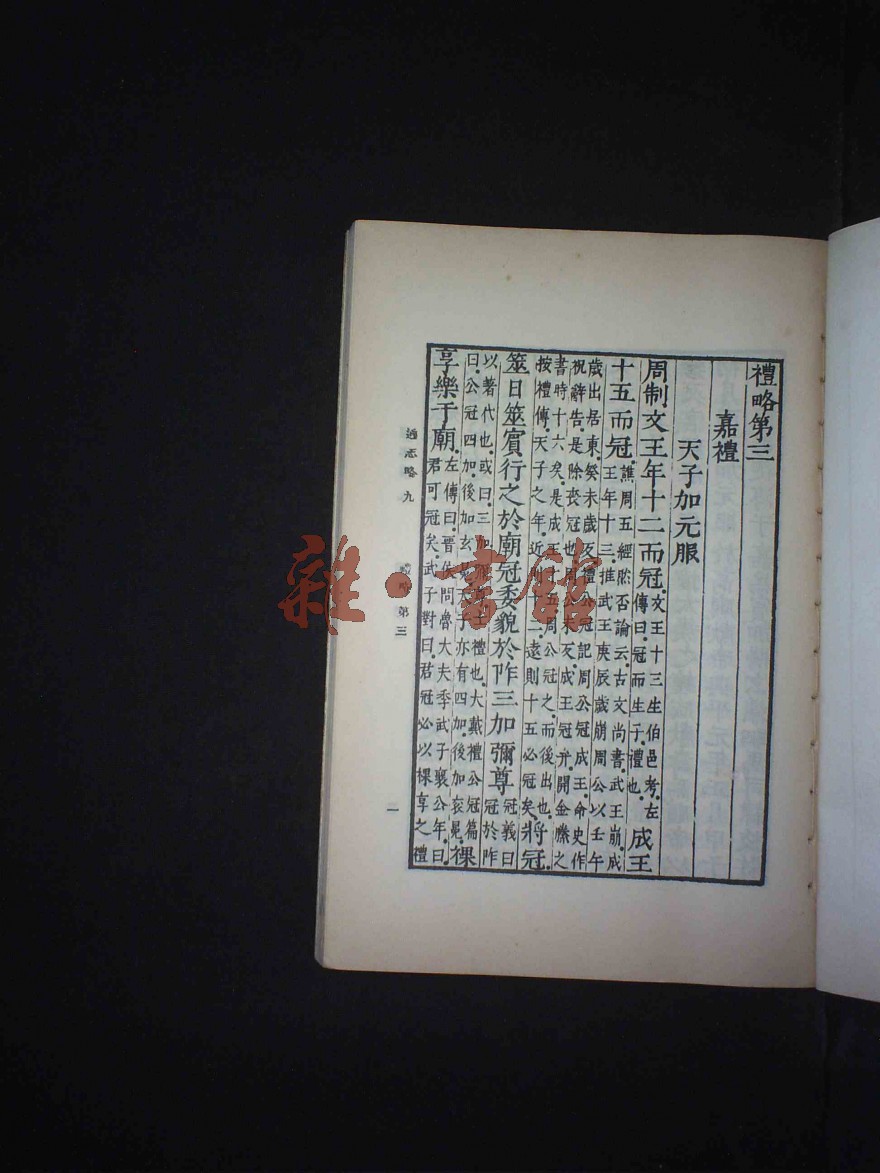 禮略第三
嘉禮
天子加元服
周制文王年十二而冠.文王十三生伯邑考.左傳曰.冠而生子.禮也.成王
十五而冠.譙周五經然否論云.古文尚書.武王崩.成王年十三.推武王庚辰歲崩.周公以壬午
歲出居東.癸未歲反.禮公冠記周公冠成王.命史作祝辭告.是除喪冠也.周公未反.成王冠弁.開金縢之
書時十六矣.是成王十五周公冠之.而後出也.按禮傳.天子之年.近則十二.遠則十五必冠矣.將冠.
筮日筮賓行之於廟.冠委貌於阼三加彌尊.冠義曰冠於阼
以著代也.或曰.三加.禮也.大戴禮公冠篇曰.公冠四加.後加玄冕.天子亦有四加.後加袞冕.祼
享樂于廟.左傳曰.晉侯問魯大夫季武子襄公年.曰君可冠矣.武子對曰.君冠必以祼享之禮
通志略 九 禮略第三 一
雜·書館